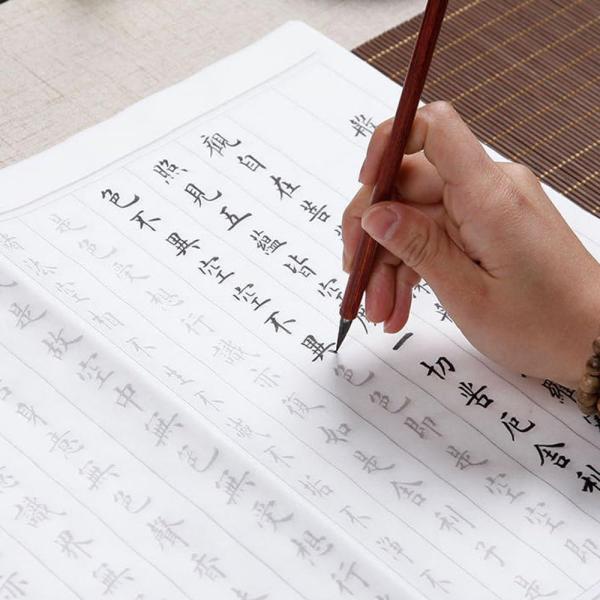 般羅
觀自在菩
照見五蘊皆空度一切苦厄舍利
色不異空空不異色色即是空空即
是色受想行識亦復如是舍利子是
諸法空相不生不滅不垢不淨不
是故空中無色無受想行
身意無色聲香
識界無
亦